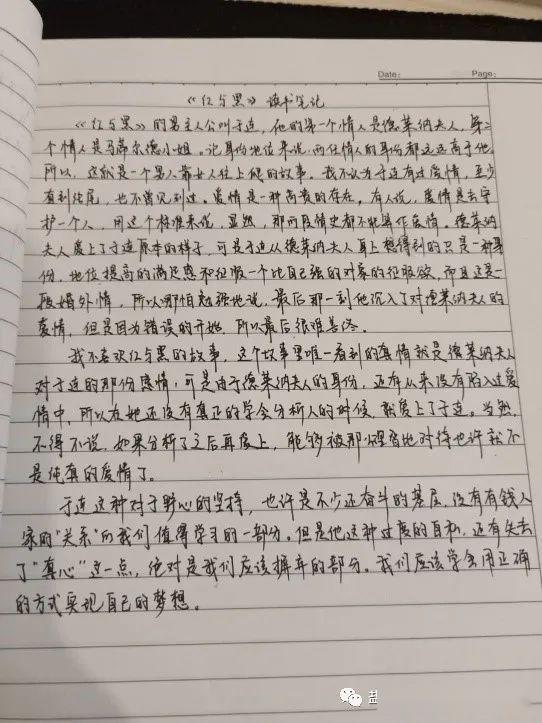 Date:
Page:
《红与黑》读书笔记
《红与黑》的男主人公叫于连，他的第一个情人是德莱纳夫人，第二
个情人是马蒂尔德小姐。论身份地位来说，两任情人的身份都远远高于他。
所以，这就是一个男人靠女人往上爬的故事。我不认为于连有过爱情，至少
看到结尾，也不曾见到过。爱情是一种高贵的存在。有人说，爱情是去守
护一个人，用这个标准来说，显然，那两段情史都不能算作爱情。德莱纳
夫人爱上了于连原本的样子，可是于连从德莱纳夫人身上想得到的只是一种身
份，地位提高的满足感和征服一个比自己强的对象的征服欲，而且这是一
段婚外情，所以哪怕勉强地说，最后那一刻他沉入了对德莱纳夫人的
爱情，但是因为错误的开始，所以最后很难善终。
我不喜欢红与黑的故事，这个故事里唯一看到的真情就是德莱纳夫人
对于连的那份感情，可是由于德莱纳夫人的身份，还有从来没有陷入过爱
情中，所以在她还没有真正的学会分析人的时候，就爱上了于连。当然，
不得不说，如果分析了之后再爱上，能够被那么理智地对待也许就不
是纯真的爱情了。
于连这种对于野心的坚持，也许是不少还奋斗的基层，没有有钱人
家的“关系”的我们值得学习的一部分。但是他这种过度的自私，还有失去
了“真心”这一点，绝对是我们应该摒弃的部分。我们应该学会用正确
的方式实现自己的梦想。
盐